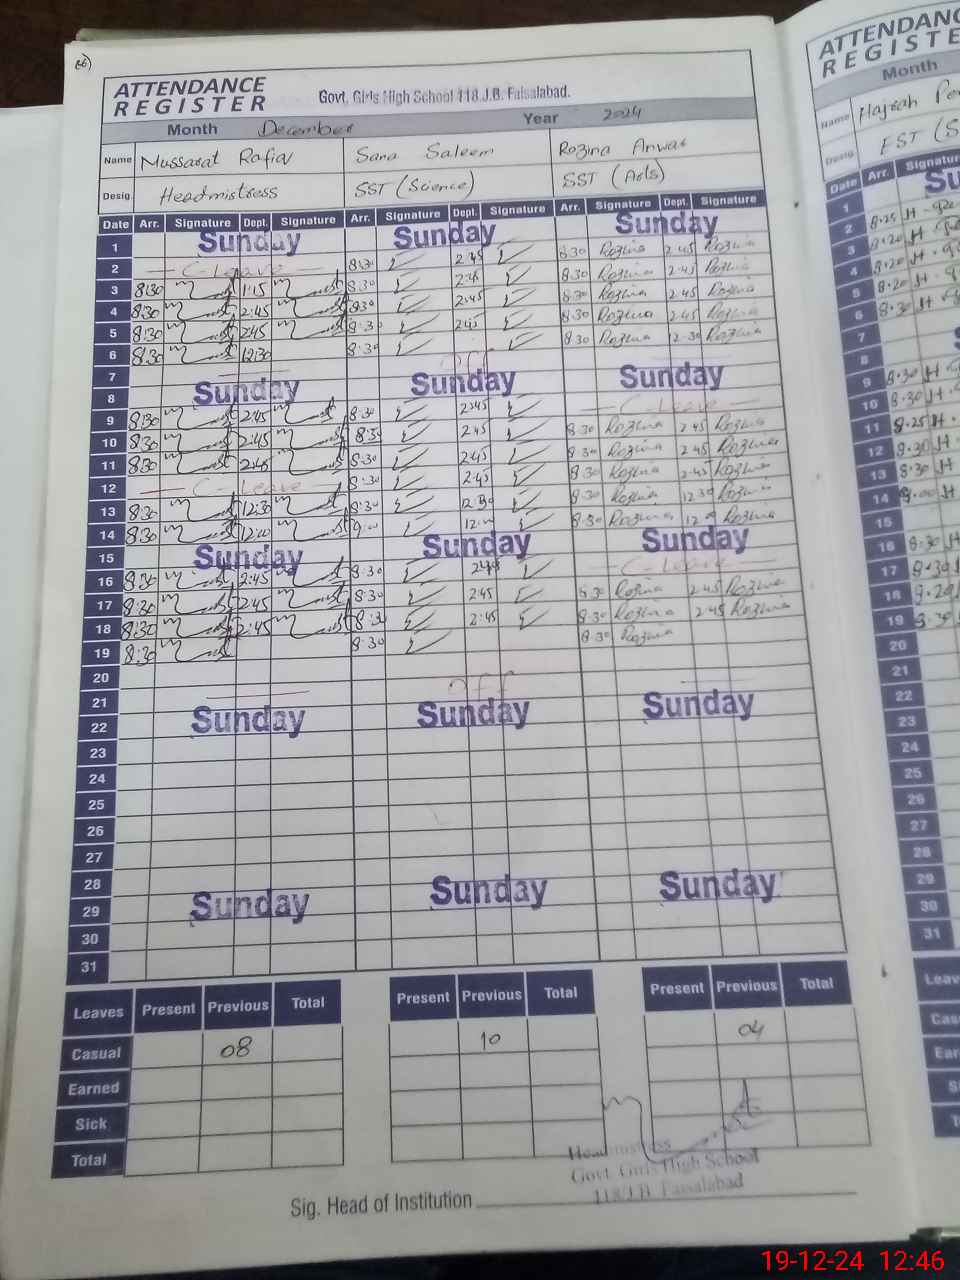 ATTENDANCE
REGISTER Govt. Girls High School 118 J.B. Faisalabad.
Month December Year 2024
Name Mussarat Rafiq Sana Saleem Rozina Anwar
Desig. Headmistress SST (Science) SST (Arts)
Date Arr. Signature Dept. Signature Arr. Signature Dept. Signature Arr. Signature Dept. Signature
1 Sunday Sunday Sunday
2 C-Leave 8:30 2:45 8:30 Rozina 2:45 Rozina
3 8:30 1:15 8:30 8:30 Rozina 2:45 Rozina
4 8:30 2:45 8:30 2:45 8:30 Rozina 2:45 Rozina
5 8:30 2:45 8:30 2:45 8:30 Rozina 2:45 Rozina
6 8:30 12:30 8:30 8:30 Rozina 12:30 Rozina
7 off
8 Sunday Sunday Sunday
9 8:30 2:45 8:30 2:45 C-Leave
10 8:30 2:45 8:30 2:45 8:30 Rozina 2:45 Rozina
11 8:30 2:45 8:30 2:45 8:30 Rozina 2:45 Rozina
12 C-Leave 8:30 2:45 8:30 Rozina 2:45 Rozina
13 8:30 12:30 8:30 12:30 8:30 Rozina 12:30 Rozina
14 8:30 12:00 9:00 12:00 8:30 Rozina Rozina
15 Sunday Sunday Sunday
16 8:30 2:45 8:30 2:45 C-Leave
17 8:30 2:45 8:30 2:45 8:30 Rozina 2:45 Rozina
18 8:30 2:45 8:30 2:45 8:30 Rozina 2:45 Rozina
19 8:30 8:30 8:30 Rozina
20
21 off
22 Sunday Sunday Sunday
23
24
25
26
27
28
29 Sunday Sunday Sunday
30
31
Leaves Present Previous Total Present Previous Total Present Previous Total
Casual 08 10 04
Earned
Sick
Total
Headmistress
Govt. Girls High School
118/J.B. Faisalabad
Sig. Head of Institution
ATTENDANCE
REGISTER
Month
Name Hajrah
Desig.
Date Arr. Signature
1
2 8:25
3 8:20
4 8:20
5 8:20
6 8:30
7
8
9 8:30
10 8:30
11 8:25
12 8:30
13 8:30
14
15
16 8:30
17
18
19
20
21
22
23
24
25
26
27
28
29
30
31
19-12-24 12:46